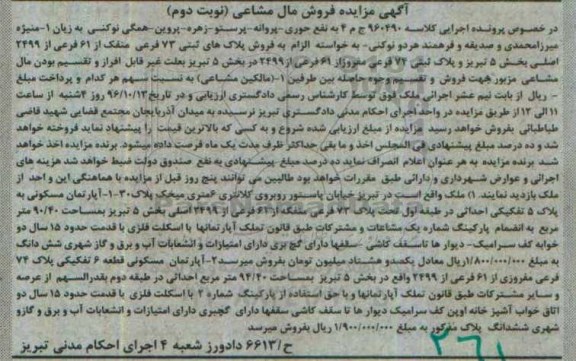 آگهی مزایده فروش مال مشاعی (نوبت دوم)
در خصوص پرونده اجرایی کلاسه ۹۶۰۴۹۰ ج م ۴ به نفع حوری-پروانه-پرستو-زهره-پروین-همگی نوکنی به زیان ۱-منیژه
میرزامحمدی و صدیقه و فرهمند هردو نوکنی- به خواسته الزام به فروش پلاک های ثبتی ۷۳ فرعی منفک از ۶۱ فرعی از ۲۴۹۹
اصلی بخش ۵ تبریز و پلاک ثبتی ۷۴ فرعی مفروز از ۶۱ فرعی از ۲۴۹۹ در بخش ۵ تبریز بعلت غیر قابل افراز و تقسیم بودن مال
مشاعی مزبور جهت فروش و تقسیم وجوه حاصله بین طرفین ۱-(مالکین مشاعی) به نسبت سهم هر کدام و پرداخت مبلغ
- ریال از بابت نیم عشر اجرائی ملک فوق توسط کارشناس رسمی دادگستری ارزیابی و در تاریخ ۹۶/۱۰/۱۳ روز ۴شنبه از ساعت
۱۱ الی ۱۲ از طریق مزایده در واحد اجرای احکام مدنی دادگستری تبریز نرسیده به میدان آذربایجان مجتمع قضایی شهید قاضی
طباطبائی بفروش خواهد رسید مزایده از مبلغ ارزیابی شده شروع و به کسی که بالاترین قیمت را پیشنهاد نماید فروخته خواهد
شد و ده درصد مبلغ پیشنهادی فی المجلس اخذ و ما بقی حداکثر ظرف مدت یک ماه فرصت داده میشود. برنده مزایده اخذ خواهد
شد برنده مزایده به هر عنوان اعلام انصراف نماید ده درصد مبلغ پیشنهادی به نفع صندوق دولت ضبط خواهد شد هزینه های
اجرائی و عوارض شهرداری و دارائی طبق مقررات خواهد بود طالبین می توانند پنج روز قبل از مزایده با هماهنگی این واحد از
ملک بازدید نمایند. ۱) ملک واقع است در تبریز خیابان پاستور روبروی کلانتری ۶متری میخک پلاک ۳۰-۱-آپارتمان مسکونی به
پلاک ۵ تفکیکی احداثی در طبقه اول تحت پلاک ۷۳ فرعی منفکه از ۶۱ فرعی از ۲۴۹۹ اصلی بخش ۵ تبریز بمساحت ۹۰/۴۰ متر
مربع به انضمام پارکینگ شماره یک مشاعات و مشترکات طبق قانون تملک آپارتمانها با اسکلت فلزی با قدمت حدود ۱۵ سال دو
خوابه کف سرامیک- دیوار ها تاسقف کاشی -سقفها دارای گچ بری دارای امتیازات و انشعابات آب و برق و گاز شهری شش دانگ
به مبلغ ۱/۸۰۰/۰۰۰/۰۰۰ریال معادل یکصدو هشتاد میلیون تومان بفروش میرسد ۲-آپارتمان مسکونی قطعه ۶ تفکیکی پلاک ۷۴
فرعی مفروزی از ۶۱ فرعی از ۲۴۹۹ واقع در بخش ۵ تبریز بمساحت ۹۴/۴۰ متر مربع احداثی در طبقه دوم بقدرالسهم از عرصه
و سایر مشترکات طبق قانون تملک آپارتمانها و با حق استفاده از پارکینگ شماره ۲ با اسکلت فلزی با قدمت حدود ۱۵ سال دو
اتاق خواب آشپز خانه اوپن کف سرامیک دیوار ها تا سقف کاشی سقفها دارای گچبری دارای امتیازات و انشعابات آب و برق و گازو
شهری ششدانگ پلاک مذکور به مبلغ ۱/۹۰۰/۰۰۰/۰۰۰ ریال بفروش میرسد
ح/۶۶۱۳ دادورز شعبه ۴ اجرای احکام مدنی تبریز
۲۶۱